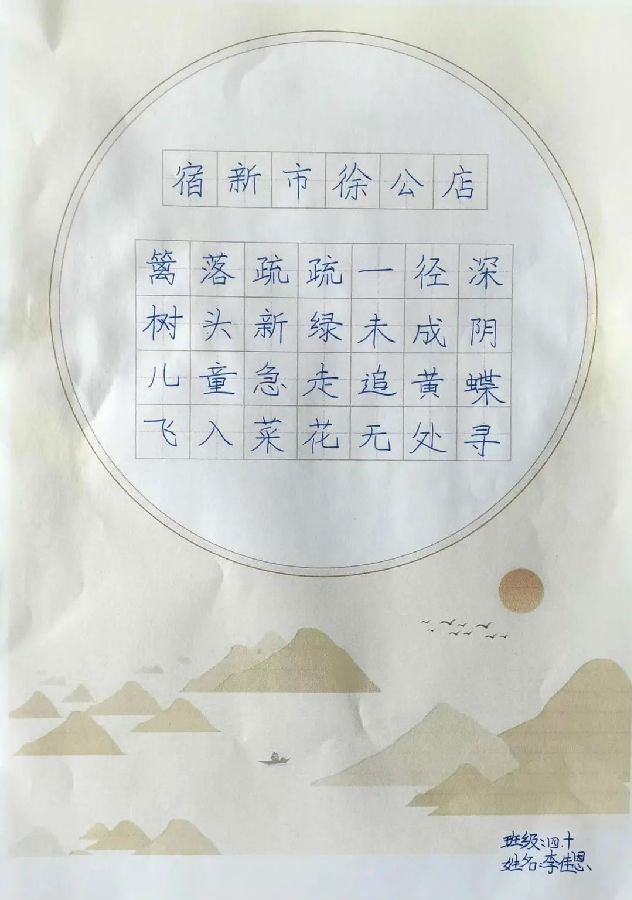 宿新市徐公店
篱落疏疏一径深
树头新绿未成阴
儿童急走追黄蝶
飞入菜花无处寻
班级:四.十
姓名:李佳恩